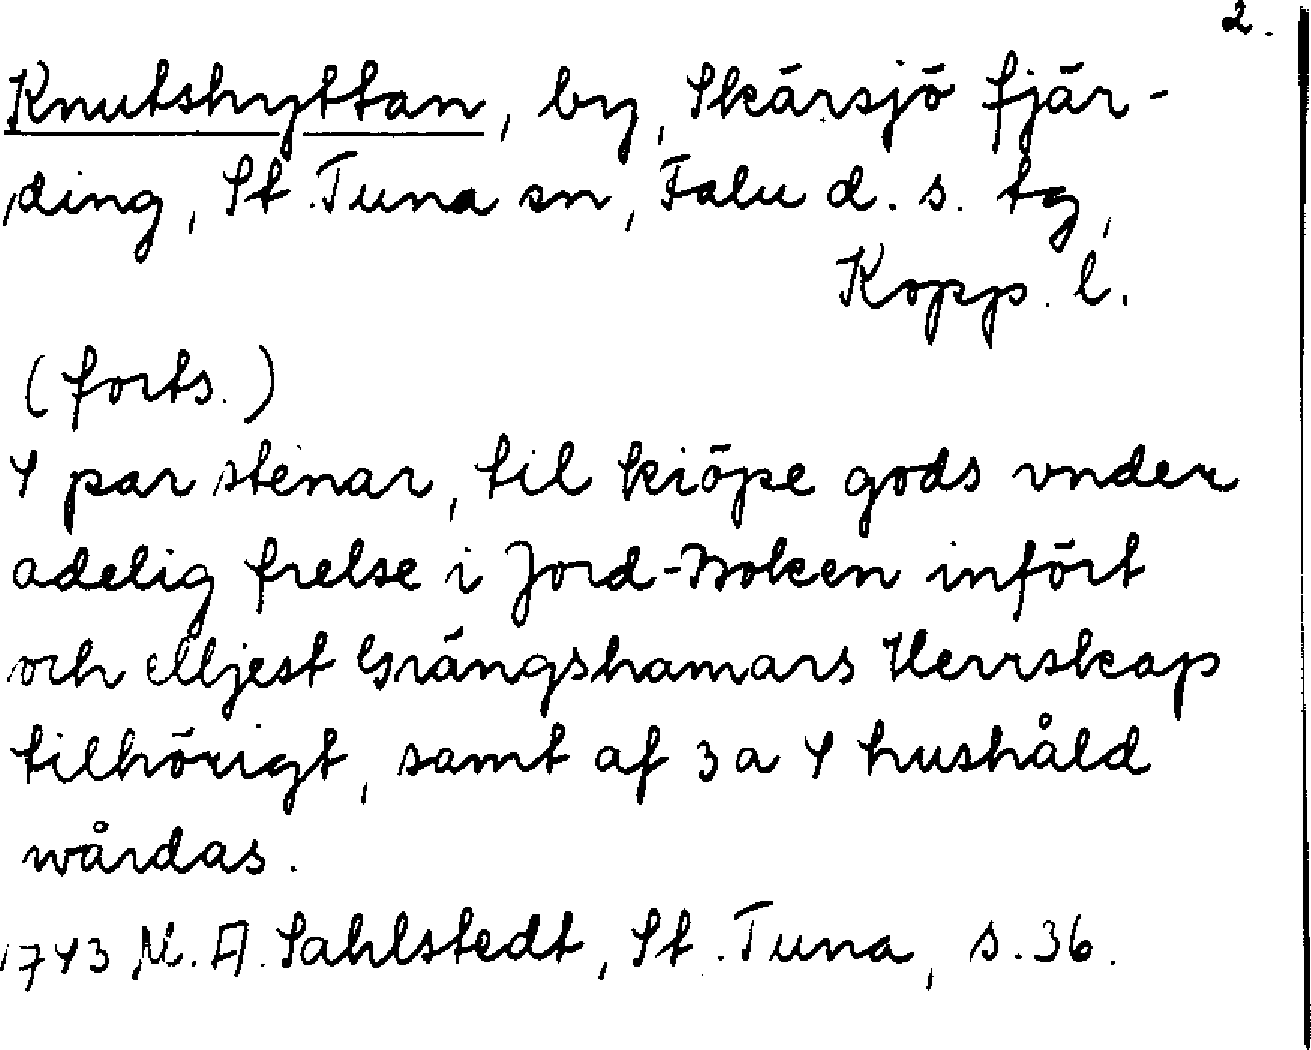 2.
Knutshyttan, by, Skärsjö fjär-
ding, St. Tuna sn, Falu d. s. tg,
Kopp. l.
(forts.)
4 par stenar, til kiöpe gods vnder
adelig frelse i Jord-Boken infört
och Mjest Grängshamars Herrskap
tilhörigt, samt af 3 a 4 hushåld
wårdas.
1743 M. A. Sahlstedt, St. Tuna, s. 36.